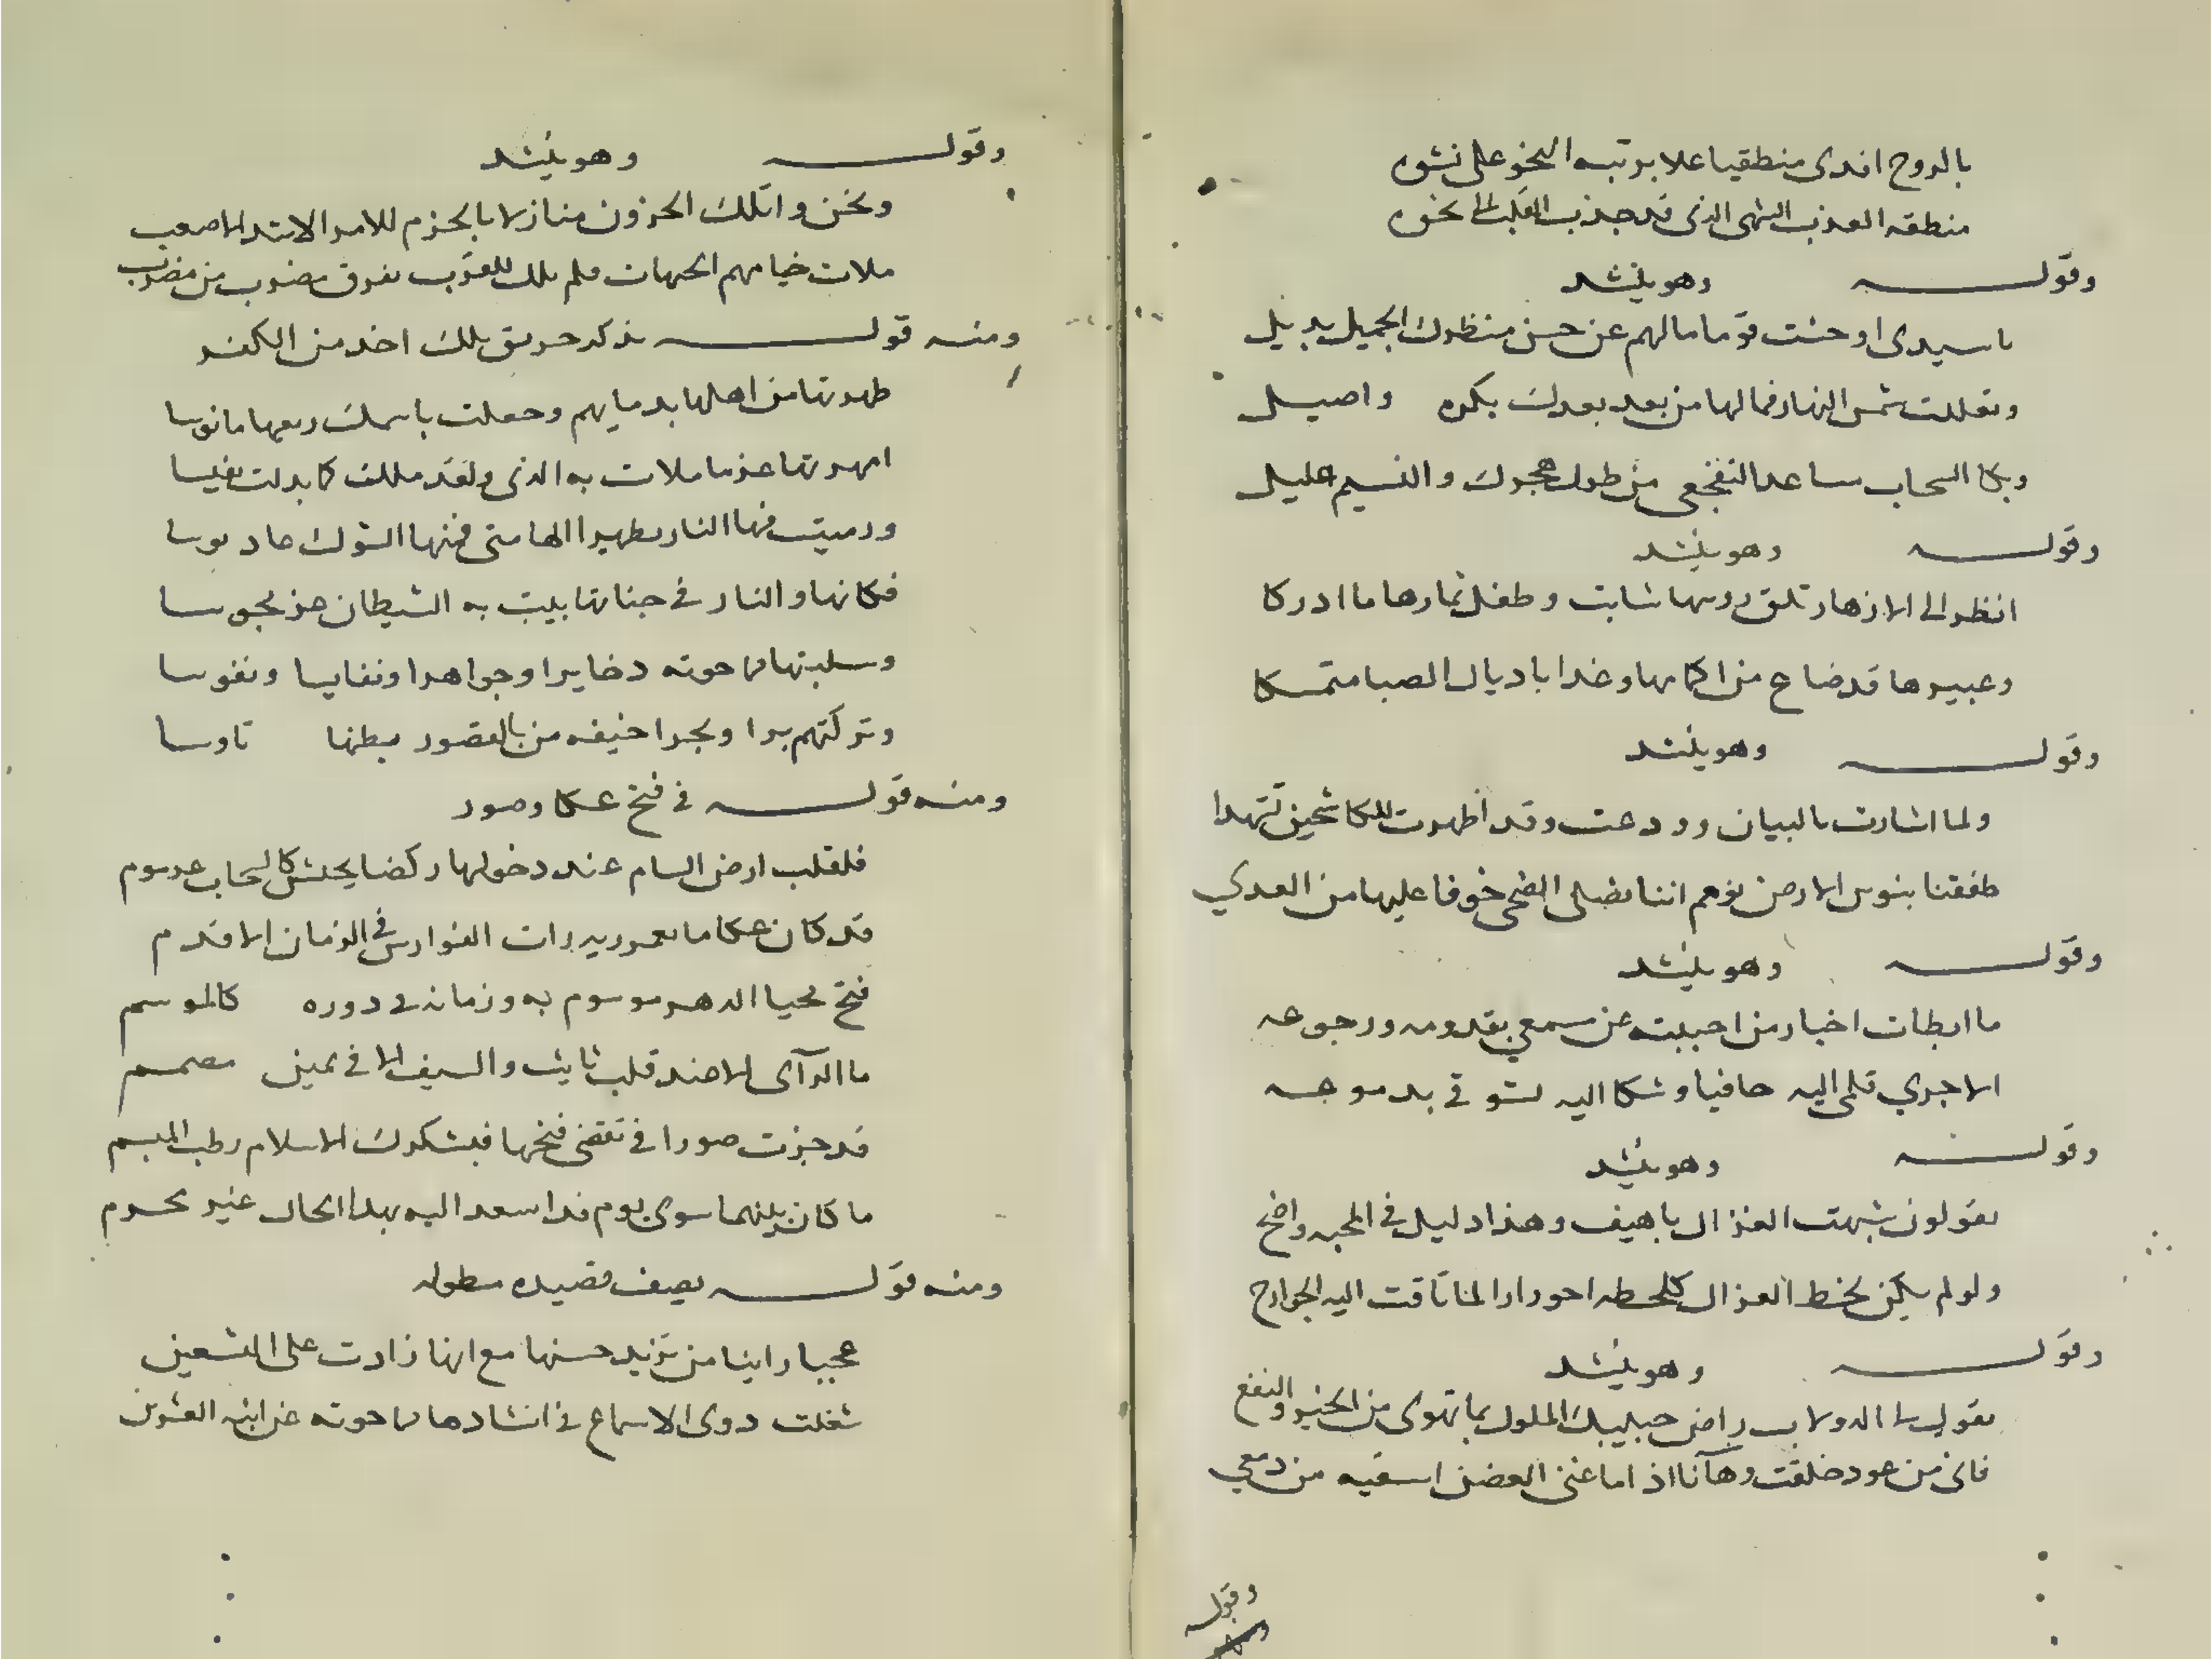 بالروح افدى منطقيا علا برتبه النحو على نشوه
منطقه العذب الشهى الذى قد جذب القلب الى نحوه
وقوله وهو ينشد
يا سيدى اوحشت قوما مالهم عن حسن منظرك الجميل بديل
وتعللت شمس النهار فمالها من بعد بعدك بكره واصيل
وبكا السحاب مساعدا لتفجعى من طول هجرك والنسيم عليل
وقوله وهو ينشد
انظر الى الازهار تلق روسها شابت وطفل ثمارها ما ادركا
وعبيرها قد ضاع من اكمامها وغدا باديال الصبا متمسكا
وقوله وهو ينشد
ولما اشارت بالبنان وودعت وقد اظهرت للكاشحين تشهدا
طفقنا بنوس الارض نوهم اننا نصلى الضحى خوفا عليها من العدي
وقوله وهو ينشد
ما ابطات اخبار من احببته عن سمعي بقدومه ورجوعه
الا جري قلمى اليه حافيا وشكا اليه تشوقي بدموعه
وقوله وهو ينشد
يقولون شبهت الغزال باهيف وهذا دليل في المحبه واضح
ولو لم يكن لحظ الغزال كلحظه احورارا لما تاقت اليه الجوارح
وقوله وهو ينشد
يقول لى الدولاب راض حبيبك الملول بما يهوى من الخير والنفع
فانى من عود خلقت وها انا اذا ما غنى الغصن اسقيه من دمعي
وقوله
وقوله وهو ينشد
ونحن واتلك الحزون منازلا بالحزم للامر الاشد الاصعب
ملات خيامهم الجهات فلم تلك للعرب تفرق مضرب من مضرب
ومنه قوله يذكر حريق تلك اخد من الكفر
طهرتها من اهلها بدمايهم وجعلت باسمك ربعها مانوسا
امهرتها عزما ملات به الذى ولقد مللك كابدلت نفيسا
ورميت فيها النار تطهيرا لها متى فمنها الشوك عاد بوسا
فكانها والنار في جناتها بيت به الشيطان حز مجوسا
وسلبتها ما حوته دخايرا وجواهرا ونفايسا ونفوسا
وتركتهم برا وبحرا خيفه من بالقصور بطنها تاوسا
ومنه قوله في فتح عكا وصور
فلقلب ارض الشام عند دخولها ركضا بجيش كالسحاب عرموم
قد كان عكا ما بعموريه رات الفوارس في الزمان الاقدم
فتح محيا الدهر موسوم به وزمانه في دوره كالموسم
ما الراى الا عند قلب ثابت والسيف الا في يمين مصمم
قد جزت صورا في تقضى فتحها فبشكرك الاسلام رطب المبسم
ما كان بينهما سوى يوم فدا سعد اليه بهدا الحال غير محرم
ومنه قوله يصف قصيده مطوله
عجبا راينا من تزيد حسنها مع انها زادت على التسعين
شغلت دوى الاسماع في انشادها ما حوته عن ابنه العشرين